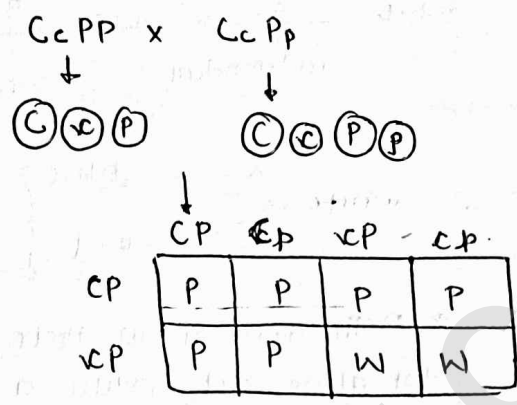 CcPP x CcPp
C c P C c P p
CP Cp cP - cp.
CP P P P P
cP P P W W